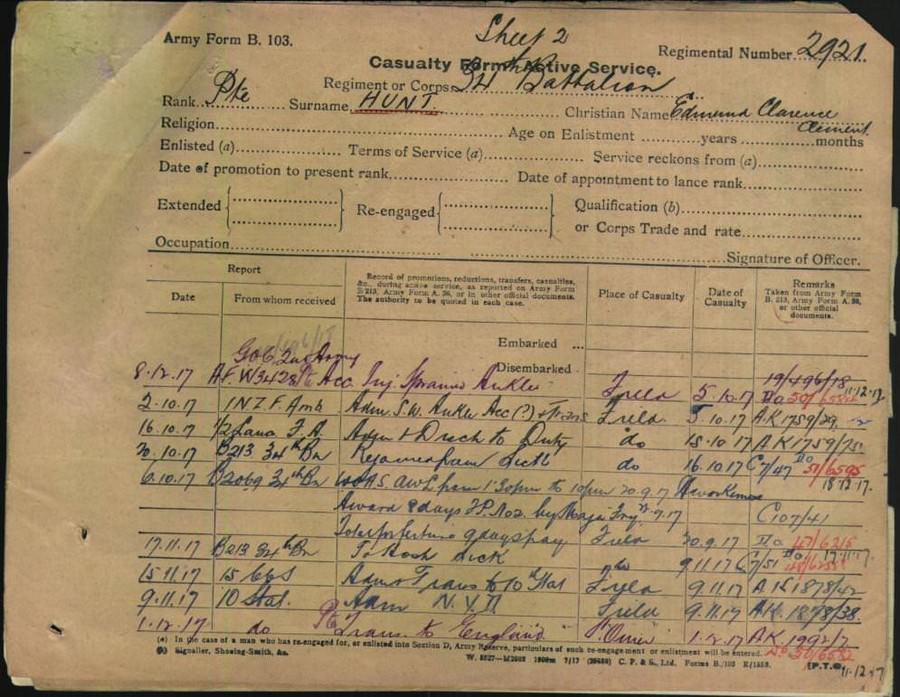 Sheet 2
Army Form B. 103.
Regimental Number 2921.
Casualty Form—Active Service.
Regiment or Corps 34th Battalion
Rank Pte Surname HUNT Christian Name Edmund Clarence
Clement
Religion Age on Enlistment years months
Enlisted (a) Terms of Service (a) Service reckons from (a)
Date of promotion to present rank Date of appointment to lance rank
Extended Re-engaged Qualification (b)
or Corps Trade and rate
Occupation
Signature of Officer.
Report
Date From whom received
Record of promotions, reductions, transfers, casualties, &c., during active service, as reported on Army Form B. 213, Army Form A. 36, or in other official documents. The authority to be quoted in each case.
Place of Casualty
Date of Casualty
Remarks
Taken from Army Form B. 213, Army Form A. 36, or other official documents.
Embarked ...
Disembarked
GOC 2nd Army
19/496/18
8.12.17 A.F.W3428 Acc. Inj. Sprained Ankle Field 5.10.17 11.12.17
2.10.17 1 N.Z.F. Amb Adm. Ankle Acc (?) Field 5.10.17 AK 1759/29
16.10.17 F.A. to Duty do 15.10.17 AK 1759/75
20.10.17 B213 34th Bn Rejoined from Sick do 16.10.17 C7/47
18.12.17.
6.10.17 B2069 34th Bn AWL from 1.30pm to 10pm 20.9.17
Award 8 days F.P. No 2. by Major C107/41
Total forfeiture 9 days pay Field 20.9.17
17.11.17 B213 34th Bn To Hosp sick do 9.11.17 C7/51 17.11.17.
15.11.17 15 CCS Adm & Trans to 10th Stat Field 9.11.17 AK 1878/42
9.11.17 10 Stat. Adm N.Y.D Field 9.11.17 AK 1878/38
1.12.17 do Trans. to England St Omer 1.12.17 AK 1992/7
(a) In the case of a man who has re-engaged for, or enlisted into Section D, Army Reserve, particulars of such re-engagement or enlistment will be entered.
(b) Signaller, Shoeing-Smith, &c.
C. P. & S., Ltd. Forms B./103
[P.T.O.
11.12.17